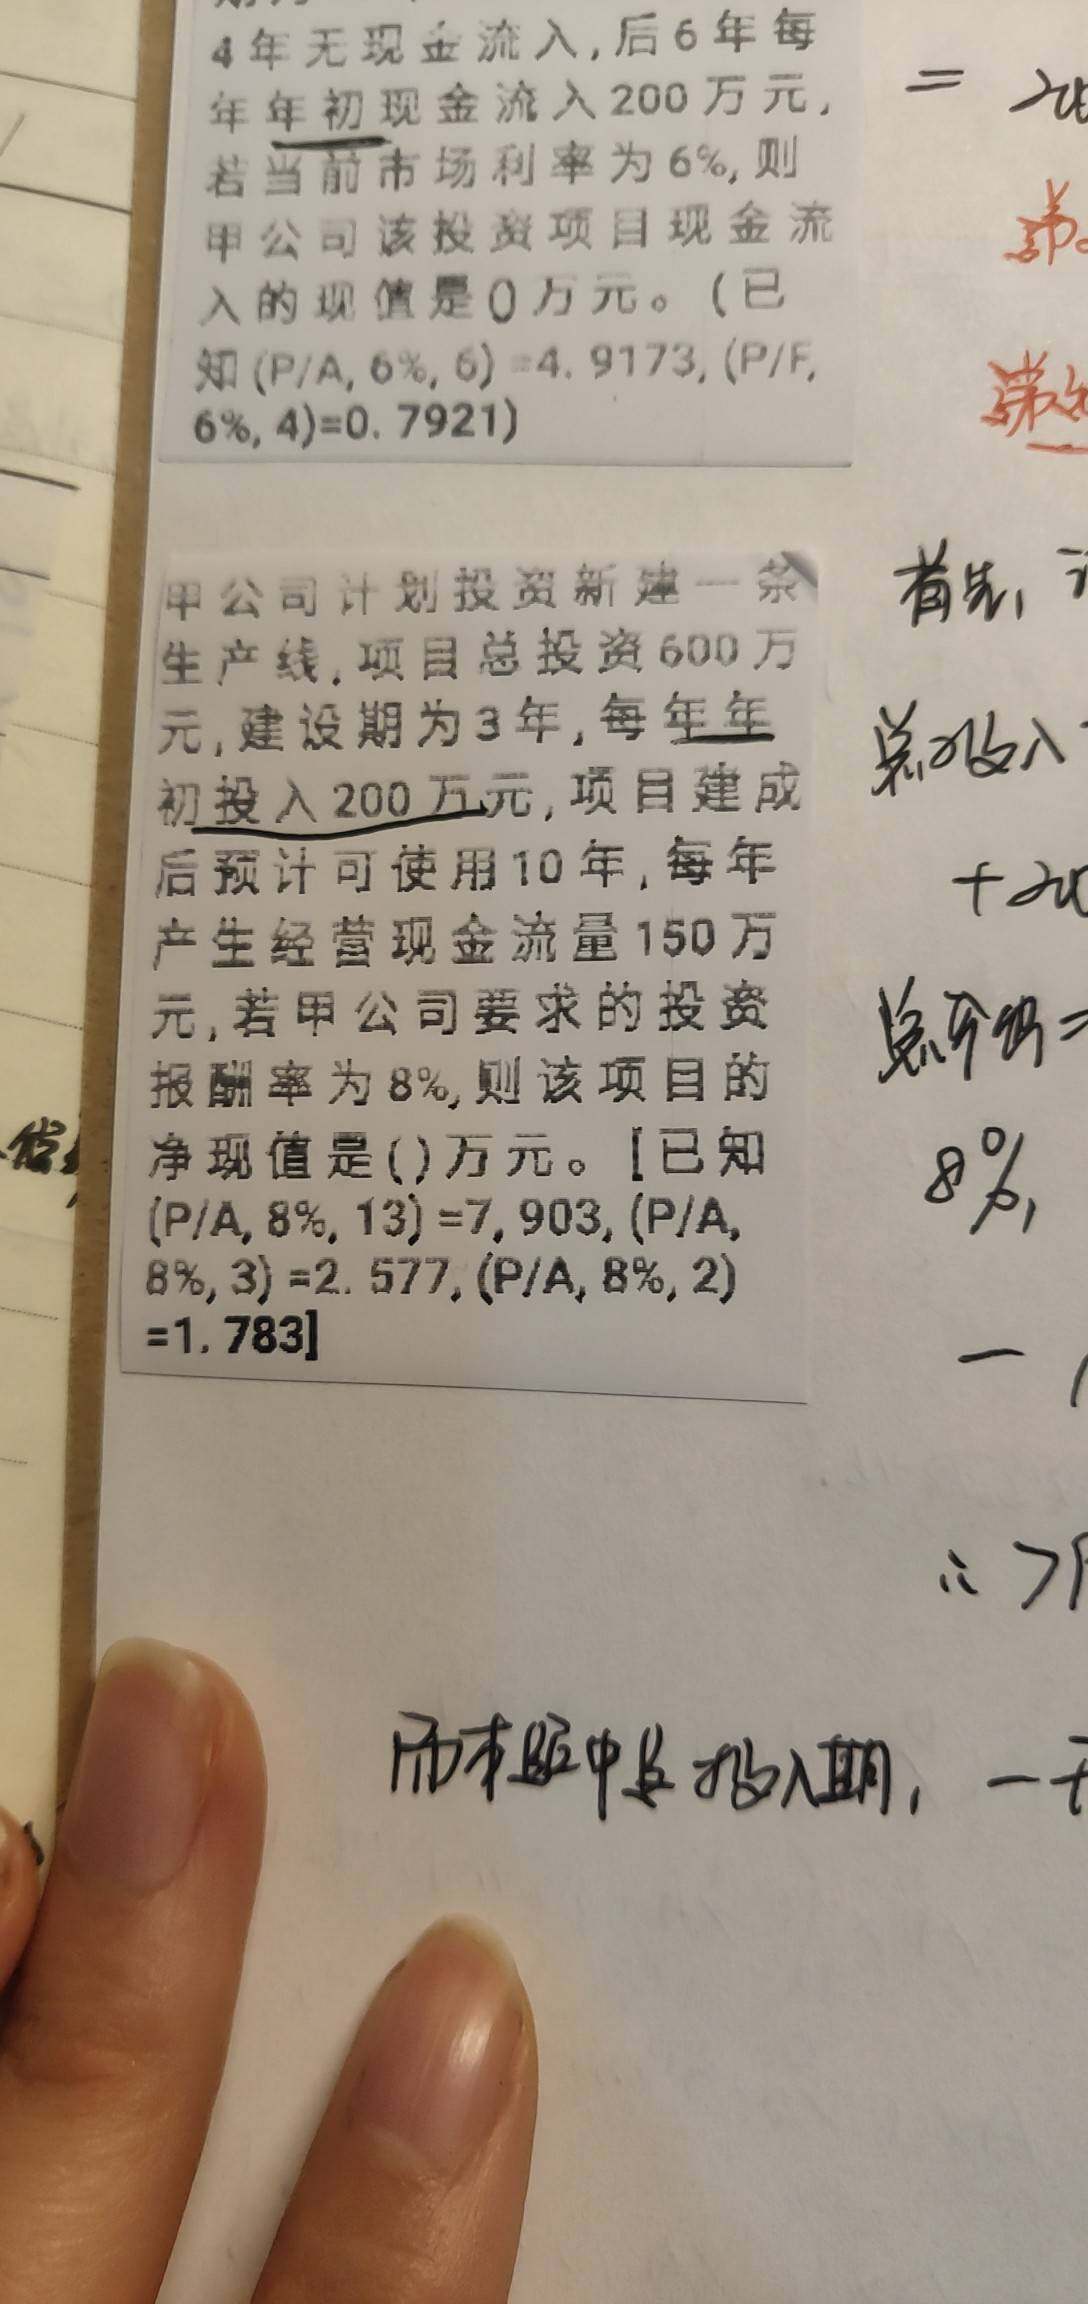 4年无现金流入,后6年每
年年初现金流入200万元,
若当前市场利率为6%,则
甲公司该投资项目现金流
入的现值是()万元。(已
知(P/A,6%,6)=4.9173,(P/F,
6%,4)=0.7921)
=
甲公司计划投资新建一条
生产线,项目总投资600万
元,建设期为3年,每年年
初投入200万元,项目建成
后预计可使用10年,每年
产生经营现金流量150万
元,若甲公司要求的投资
报酬率为8%,则该项目的
净现值是()万元。[已知
(P/A,8%,13)=7,903,(P/A,
8%,3)=2.577,(P/A,8%,2)
=1.783]
首先,
总投入
+20
8%,
而本题中是投入期,一